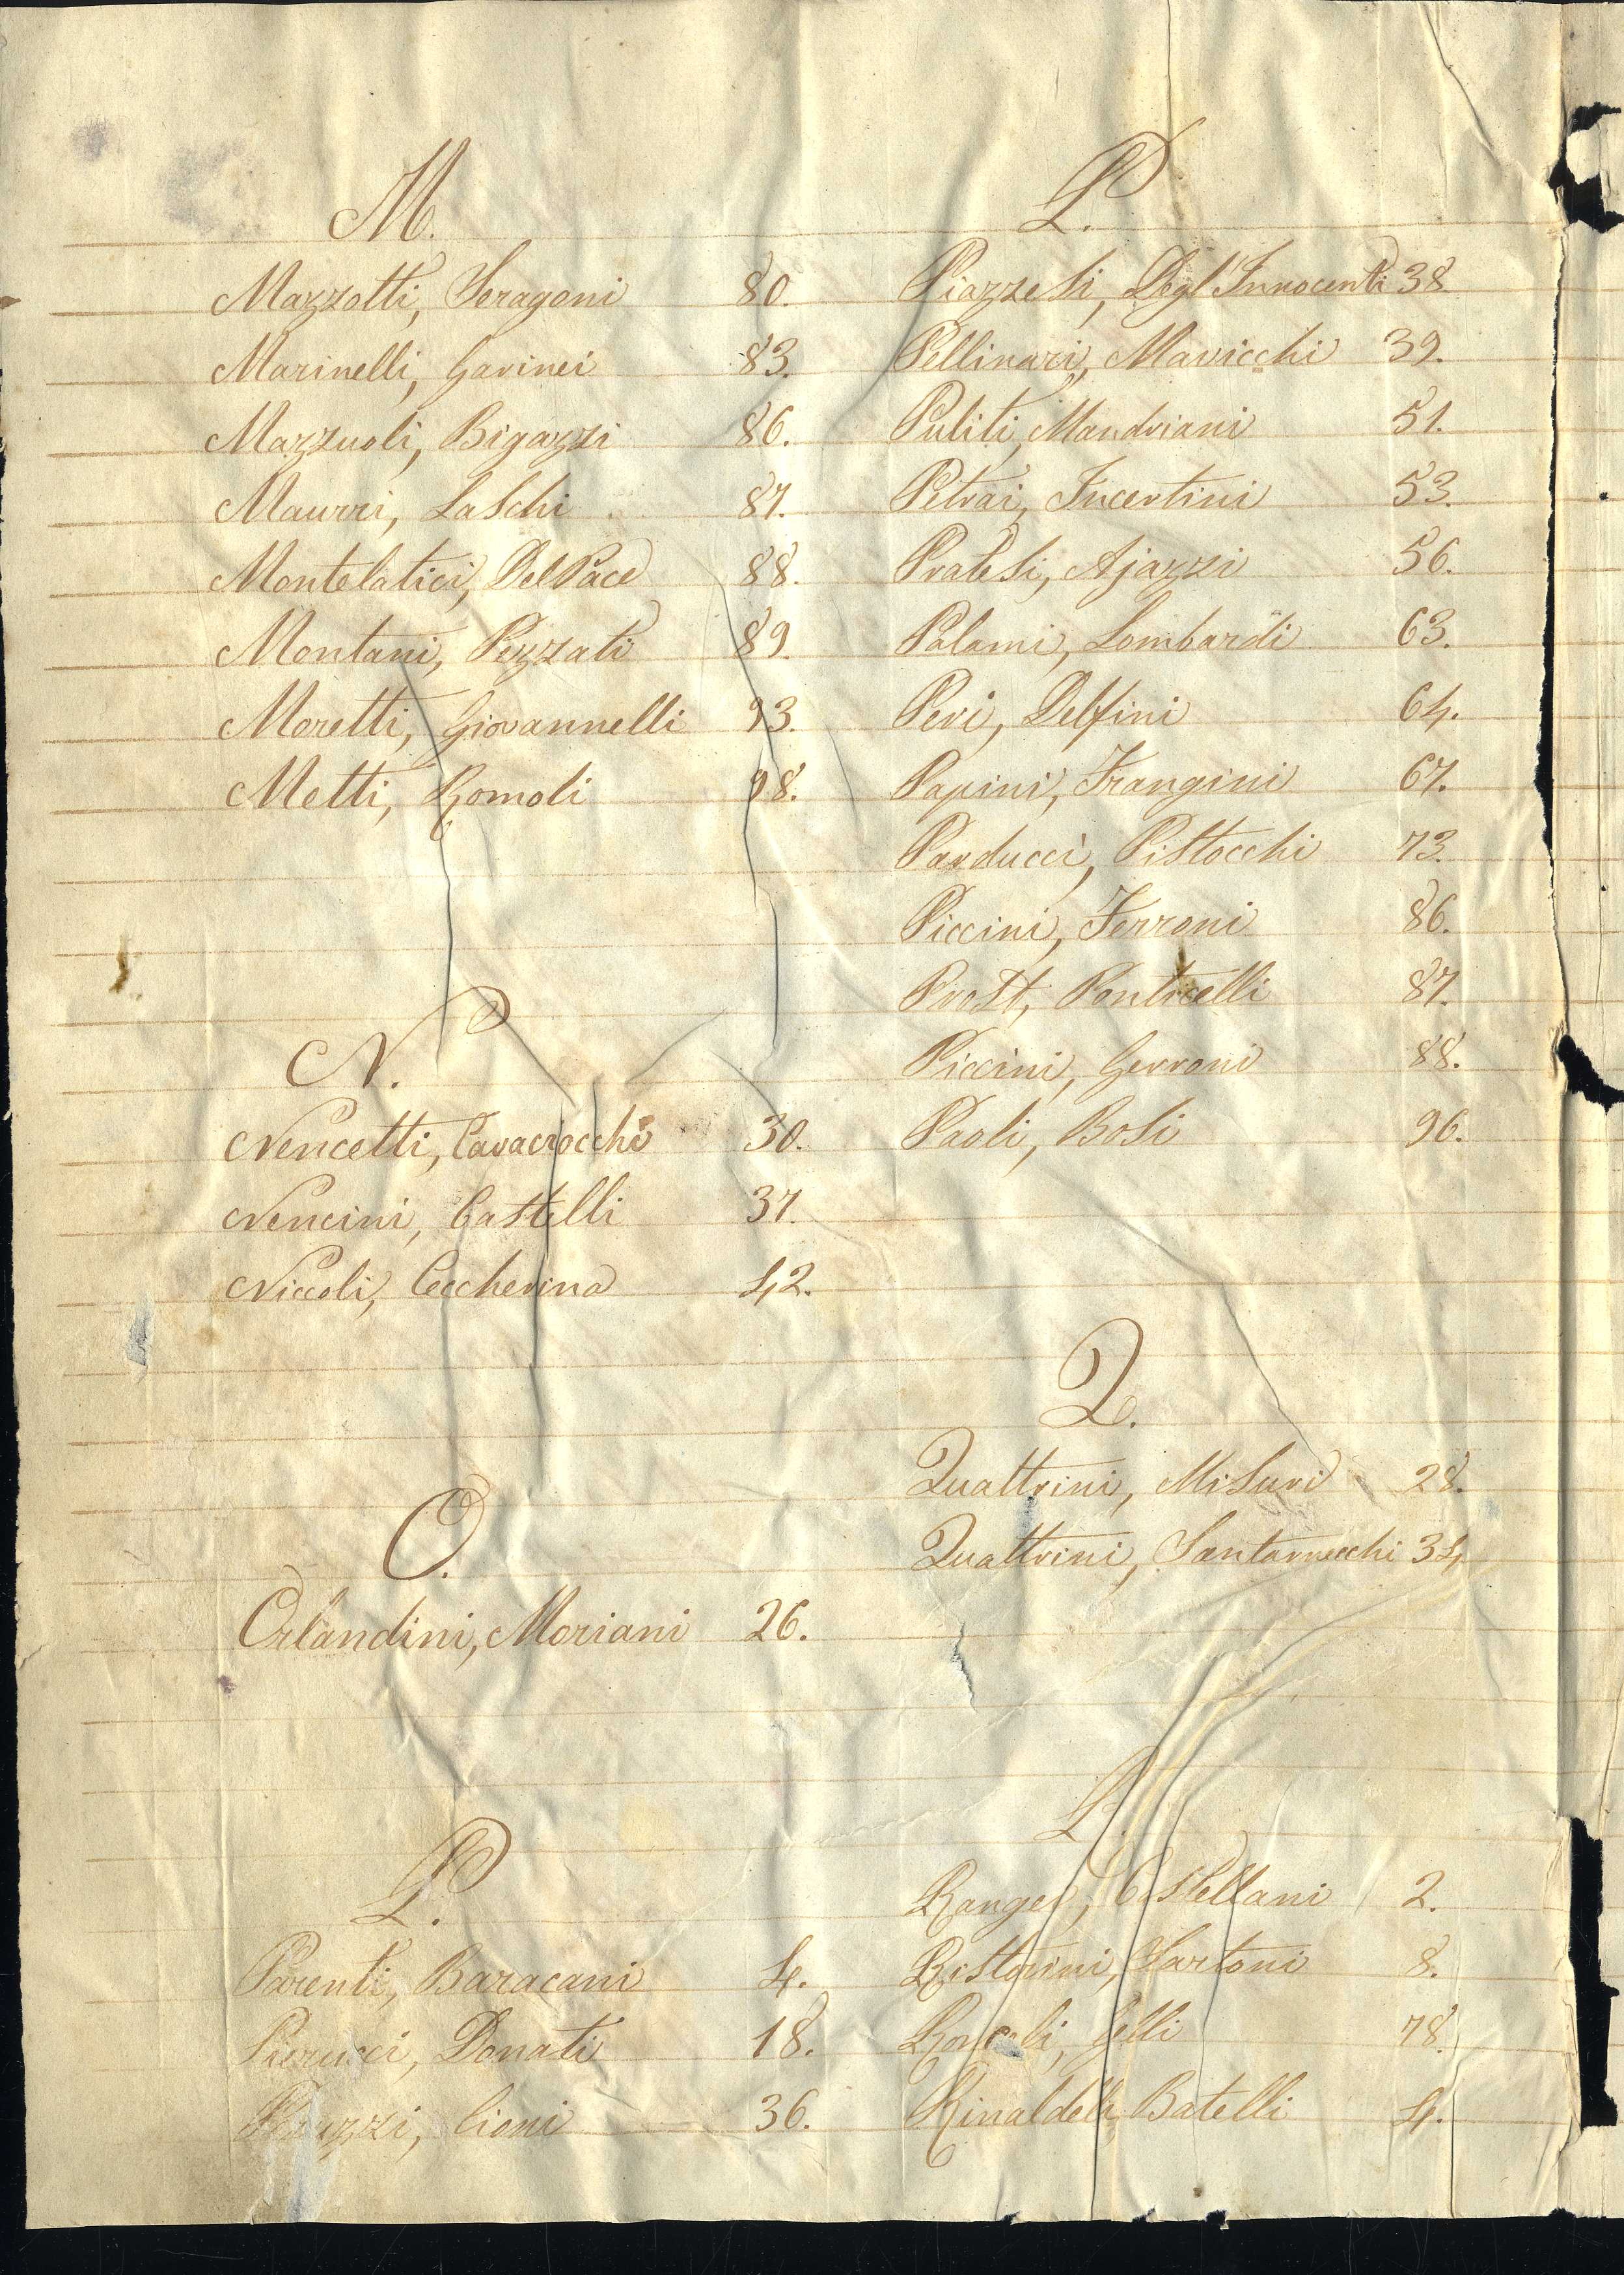 M.
Mazzotti, Seragoni 80.
Marinelli, Gavinei 83.
Mazzuoli, Bigazzi 86.
Maurri, Laschi 87.
Montelatici, Del Pace 88.
Montani, Pezzati 89.
Moretti, Giovannelli 93.
Metti, Romoli 98.
N.
Nencetti, Cavaciocchi 30.
Nencini, Castelli 37.
Niccoli, Ceccherina 42.
O.
Orlandini, Moriani 26.
P.
Parenti, Baracani 4.
Pierucci, Donati 18.
Peruzzi, Cioni 36.
P.
Piazzesi, Degl'Innocenti 38.
Pellinari, Mavicchi 39.
Puliti, Mandriani 51.
Petrai, Incertini 53.
Pratesi, Ajazzi 56.
Palami, Lombardi 63.
Peri, Delfini 64.
Papini, Frangini 67.
Parducci, Pistocchi 73.
Piccini, Ferroni 86.
Prost, Ponticelli 87.
Piccini, Gerroni 88.
Paoli, Bosi 96.
Q.
Quattrini, Misuri 28.
Quattrini, Santarnecchi 34.
R.
Castellani 2.
Ristorini, Sartoni 8.
Roncoli, Gelli 78.
Rinaldelli, Batelli 4.